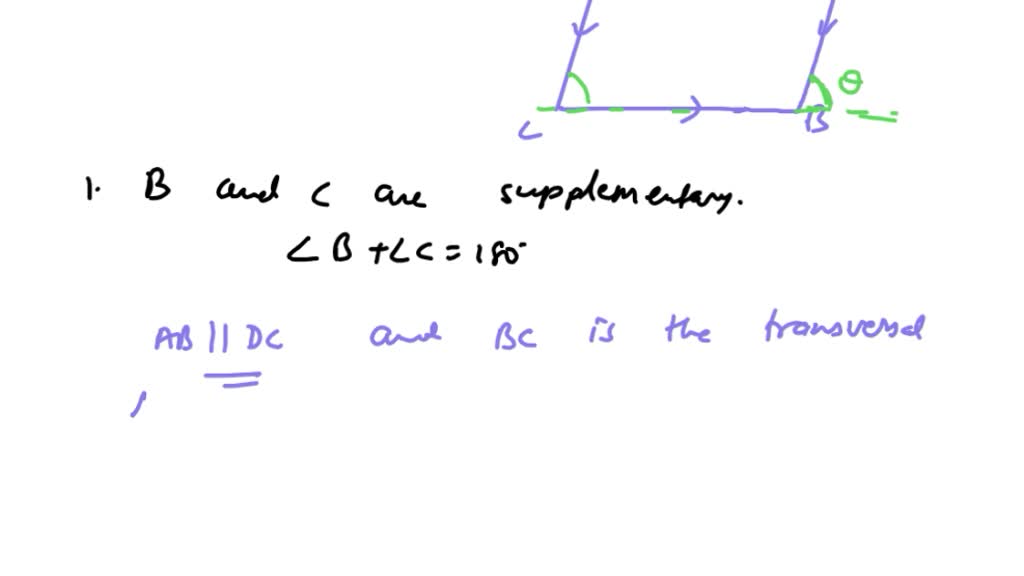 θ
C B
1. B and C are supplementary.
∠B + ∠C = 180°
AB || DC and BC is the transversal